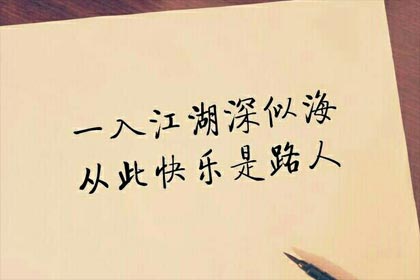 一入江湖深似海
从此快乐是路人